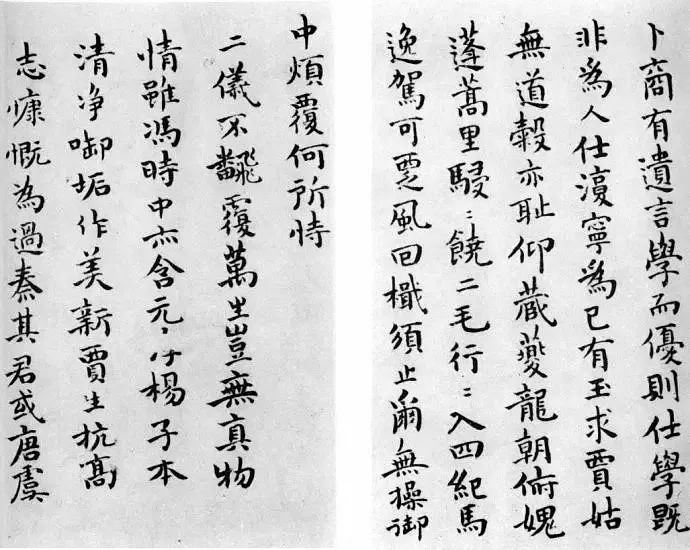 卜商有遺言學而優則仕學既
非為人仕瀆寧為已有玉求賈姑
無道穀亦恥仰蔵夔龍朝俯媿
蓬蒿里駸〻饒二毛行〻入四紀馬
逸駕可覂風回檝須止爾無操御
中煩覆何所恃
二儀不飜覆萬生豈無真物
情雖馮時中亦含元〻楊子本
清净啣垢作美新賈生抗髙
志慷慨為過秦其君或唐虞